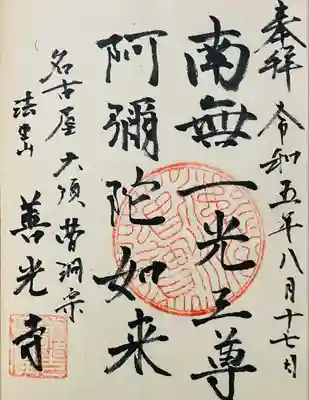 奉拝 令和五年八月十七日
南無一光三尊
阿彌陀如来
名古屋 大須 曹洞宗
善光寺